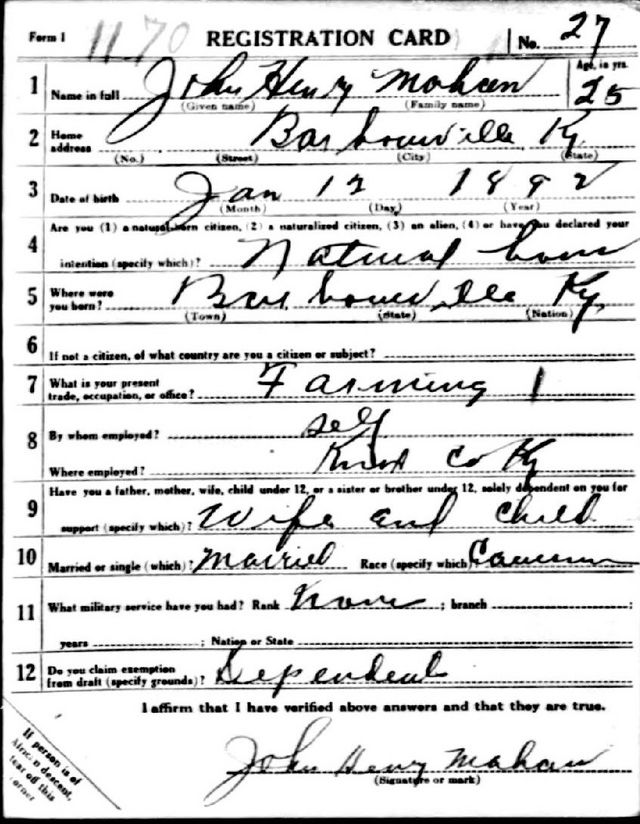 Form 1 1170 REGISTRATION CARD No. 27
1 Name in full John Henry Mahan Age, in yrs. 25
(Given name) (Family name)
2 Home address Barbourville Ky
(No.) (Street) (City) (State)
3 Date of birth Jan 12 1892
(Month) (Day) (Year)
Are you (1) a natural born citizen, (2) a naturalized citizen, (3) an alien, (4) or have you declared your
4 intention (specify which)? Natural born
5 Where were you born? Barbourville Ky
(Town) (State) (Nation)
6 If not a citizen, of what country are you a citizen or subject?
7 What is your present trade, occupation, or office? Farming 1
8 By whom employed? self
Where employed? Knox Co Ky
Have you a father, mother, wife, child under 12, or a sister or brother under 12, solely dependent on you for
9 support (specify which)? Wife and Child
10 Married or single (which)? Married Race (specify which)
11 What military service have you had? Rank None ; branch ;
years ; Nation or State
12 Do you claim exemption from draft (specify grounds)? Dependent
I affirm that I have verified above answers and that they are true.
John Henry Mahan
(Signature or mark)
If person is of
African descent,
tear off this
corner